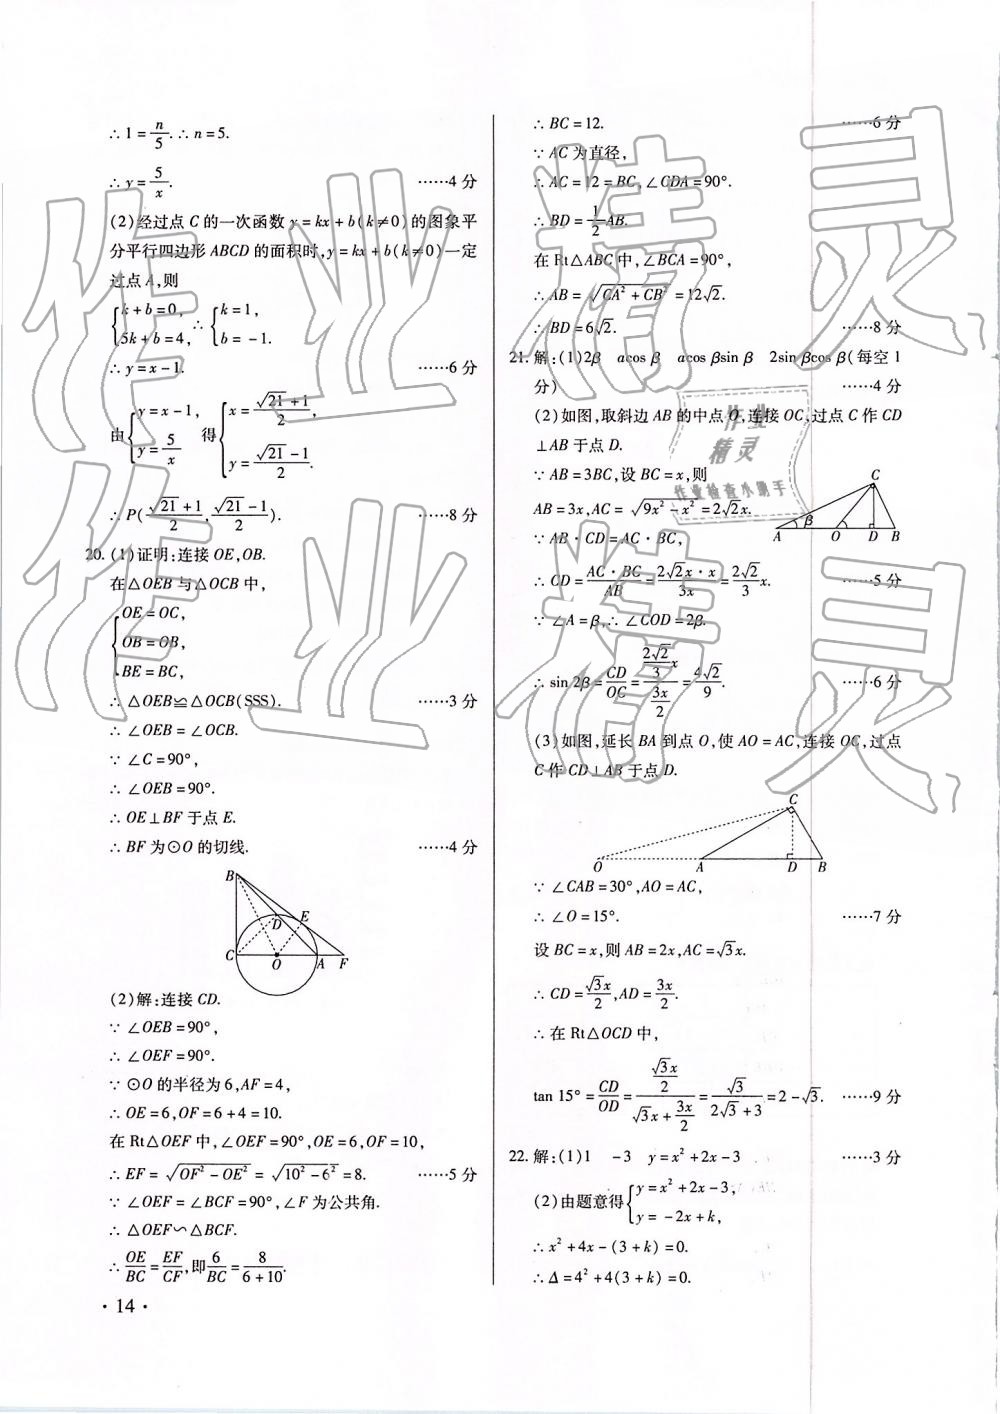 ∴ 1 = n/5. ∴ n = 5.
∴ y = 5/x. ……4 分
(2)经过点 C 的一次函数 y = kx + b(k≠0)的图象平
分平行四边形 ABCD 的面积时,y = kx + b(k≠0)一定
过点 A,则
{k + b = 0, 5k + b = 4, ∴ {k = 1, b = -1.
∴ y = x - 1. ……6 分
由{y = x - 1, y = 5/x 得{x = (√21 + 1)/2, y = (√21 - 1)/2.
∴ P((√21 + 1)/2, (√21 - 1)/2). ……8 分
20. (1)证明:连接 OE,OB.
在△OEB 与△OCB 中,
{OE = OC,
OB = OB,
BE = BC,
∴ △OEB≌△OCB(SSS). ……3 分
∴ ∠OEB = ∠OCB.
∵ ∠C = 90°,
∴ ∠OEB = 90°.
∴ OE⊥BF 于点 E.
∴ BF 为⊙O 的切线. ……4 分
B
D E
C O A F
(2)解:连接 CD.
∵ ∠OEB = 90°,
∴ ∠OEF = 90°.
∵ ⊙O 的半径为 6,AF = 4,
∴ OE = 6,OF = 6 + 4 = 10.
在 Rt△OEF 中,∠OEF = 90°,OE = 6,OF = 10,
∴ EF = √(OF² - OE²) = √(10² - 6²) = 8. ……5 分
∵ ∠OEF = ∠BCF = 90°,∠F 为公共角.
∴ △OEF∽△BCF.
∴ OE/BC = EF/CF,即 6/BC = 8/(6 + 10).
· 14 ·
∴ BC = 12. ……6 分
∵ AC 为直径,
∴ AC = 12 = BC,∠CDA = 90°.
∴ BD = 1/2 AB.
在 Rt△ABC 中,∠BCA = 90°,
∴ AB = √(CA² + CB²) = 12√2.
∴ BD = 6√2. ……8 分
21. 解:(1)2β acos β acos βsin β 2sin βcos β(每空 1
分) ……4 分
(2)如图,取斜边 AB 的中点 O,连接 OC,过点 C 作 CD
⊥AB 于点 D.
∵ AB = 3BC,设 BC = x,则
AB = 3x,AC = √(9x² - x²) = 2√2x.
C
β
A O D B
∵ AB · CD = AC · BC,
∴ CD = (AC · BC)/AB = (2√2x · x)/3x = (2√2/3)x. ……5 分
∵ ∠A = β,∴ ∠COD = 2β.
∴ sin 2β = CD/OC = ((2√2/3)x)/(3x/2) = 4√2/9. ……6 分
(3)如图,延长 BA 到点 O,使 AO = AC,连接 OC,过点
C 作 CD⊥AB 于点 D.
C
O A D B
∵ ∠CAB = 30°,AO = AC,
∴ ∠O = 15°. ……7 分
设 BC = x,则 AB = 2x,AC = √3x.
∴ CD = √3x/2,AD = 3x/2.
∴ 在 Rt△OCD 中,
tan 15° = CD/OD = (√3x/2)/(√3x + 3x/2) = √3/(2√3 + 3) = 2 - √3. ……9 分
22. 解:(1)1 -3 y = x² + 2x - 3 ……3 分
(2)由题意得{y = x² + 2x - 3, y = -2x + k,
∴ x² + 4x - (3 + k) = 0.
∴ Δ = 4² + 4(3 + k) = 0.
作业精灵
作业精灵
作业
精灵
作业检查小助手